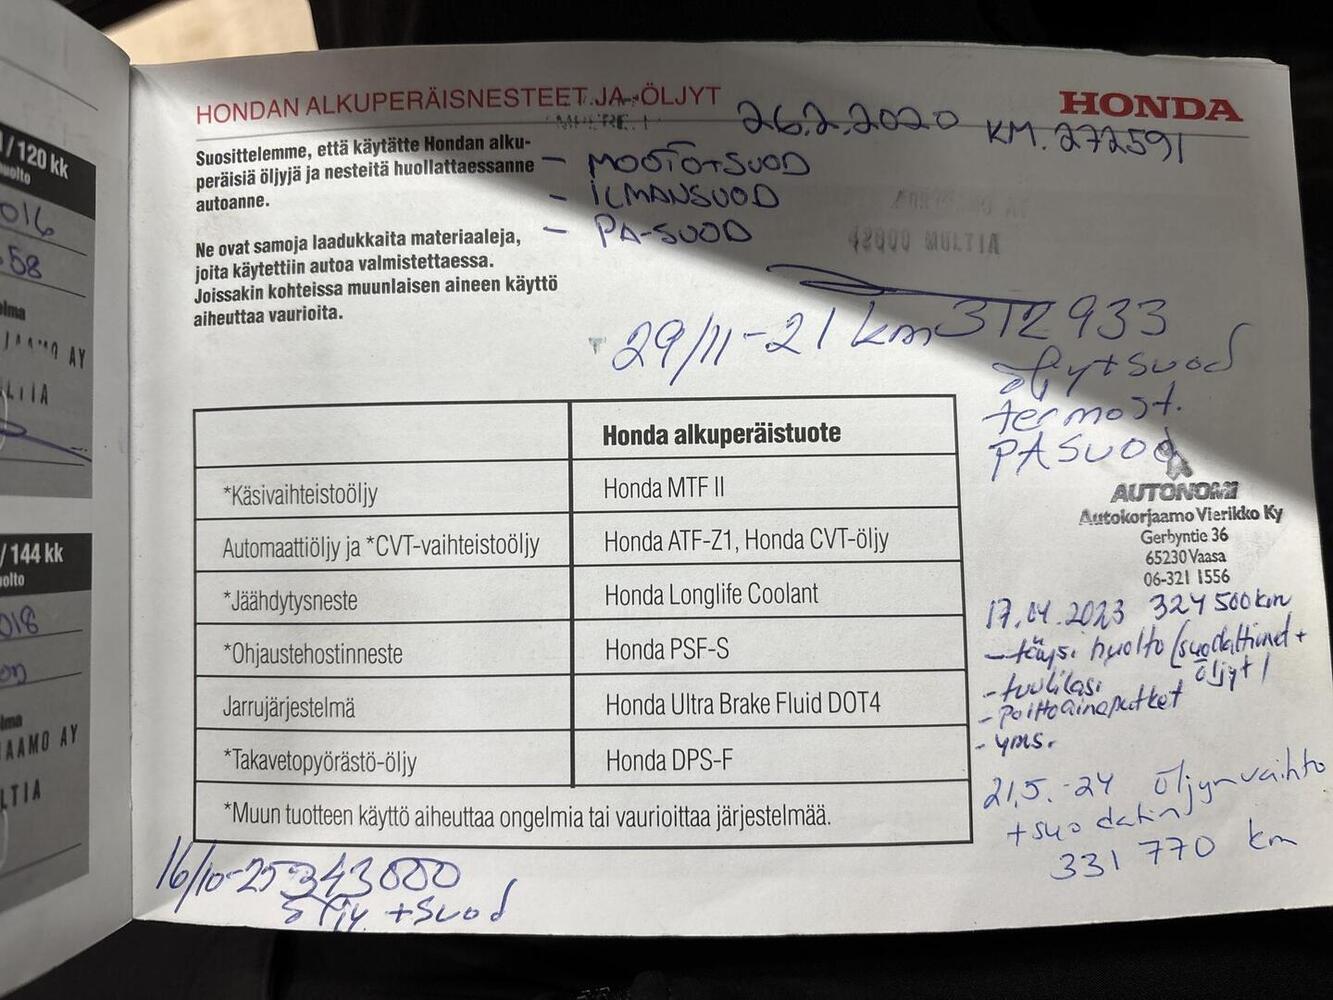 / 120 kk
huolto
016
58
AAMO AY
LTIA
/ 144 kk
uolto
018
AAMO AY
LTIA
HONDAN ALKUPERÄISNESTEET JA -ÖLJYT
HONDA
26.2.2020 KM. 272591
Suosittelemme, että käytätte Hondan alku-
peräisiä öljyjä ja nesteitä huollattaessanne
autoanne.
- MOOTO+SUOD
- ILMANSUOD
- PA-SUOD
42600 MULTIA
Ne ovat samoja laadukkaita materiaaleja,
joita käytettiin autoa valmistettaessa.
Joissakin kohteissa muunlaisen aineen käyttö
aiheuttaa vaurioita.
29/11-21 km 312 933
öljy+suod
termost.
PA SUOD
Honda alkuperäistuote
*Käsivaihteistoöljy Honda MTF II
Automaattiöljy ja *CVT-vaihteistoöljy Honda ATF-Z1, Honda CVT-öljy
*Jäähdytysneste Honda Longlife Coolant
*Ohjaustehostinneste Honda PSF-S
Jarrujärjestelmä Honda Ultra Brake Fluid DOT4
*Takavetopyörästö-öljy Honda DPS-F
*Muun tuotteen käyttö aiheuttaa ongelmia tai vaurioittaa järjestelmää.
AUTONOMI
Autokorjaamo Vierikko Ky
Gerbyntie 36
65230 Vaasa
06-321 1556
17.04.2023 324 500km
- täysi huolto (suodattimet +
öljyt)
- tuulilasi
- Polttoaineputket
- yms.
21.5.-24 öljynvaihto
+suodatin
331 770 km
16/10-25 343000
öljy +suod